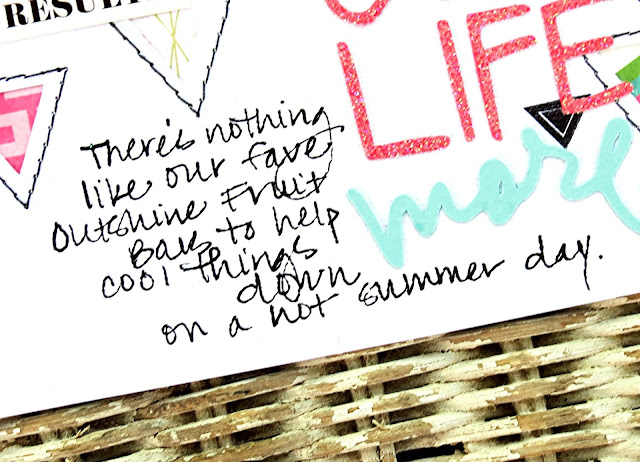 RESUL
LIFE
more
There's nothing
like our fave
Outshine Fruit
Bars to help
cool things
down
on a hot summer day.